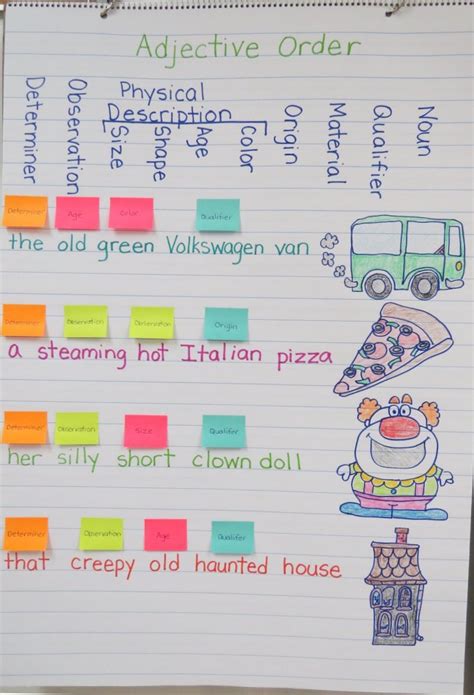 Adjective Order
Determiner
Observation
Physical
Description
Size
Shape
Age
Color
Origin
Material
Qualifier
Noun
Determiner Age Color Qualifier
the old green Volkswagen van
Determiner Observation Observation Origin
a steaming hot Italian pizza
Determiner Observation Size Qualifier
her silly short clown doll
Determiner Observation Age Qualifier
that creepy old haunted house